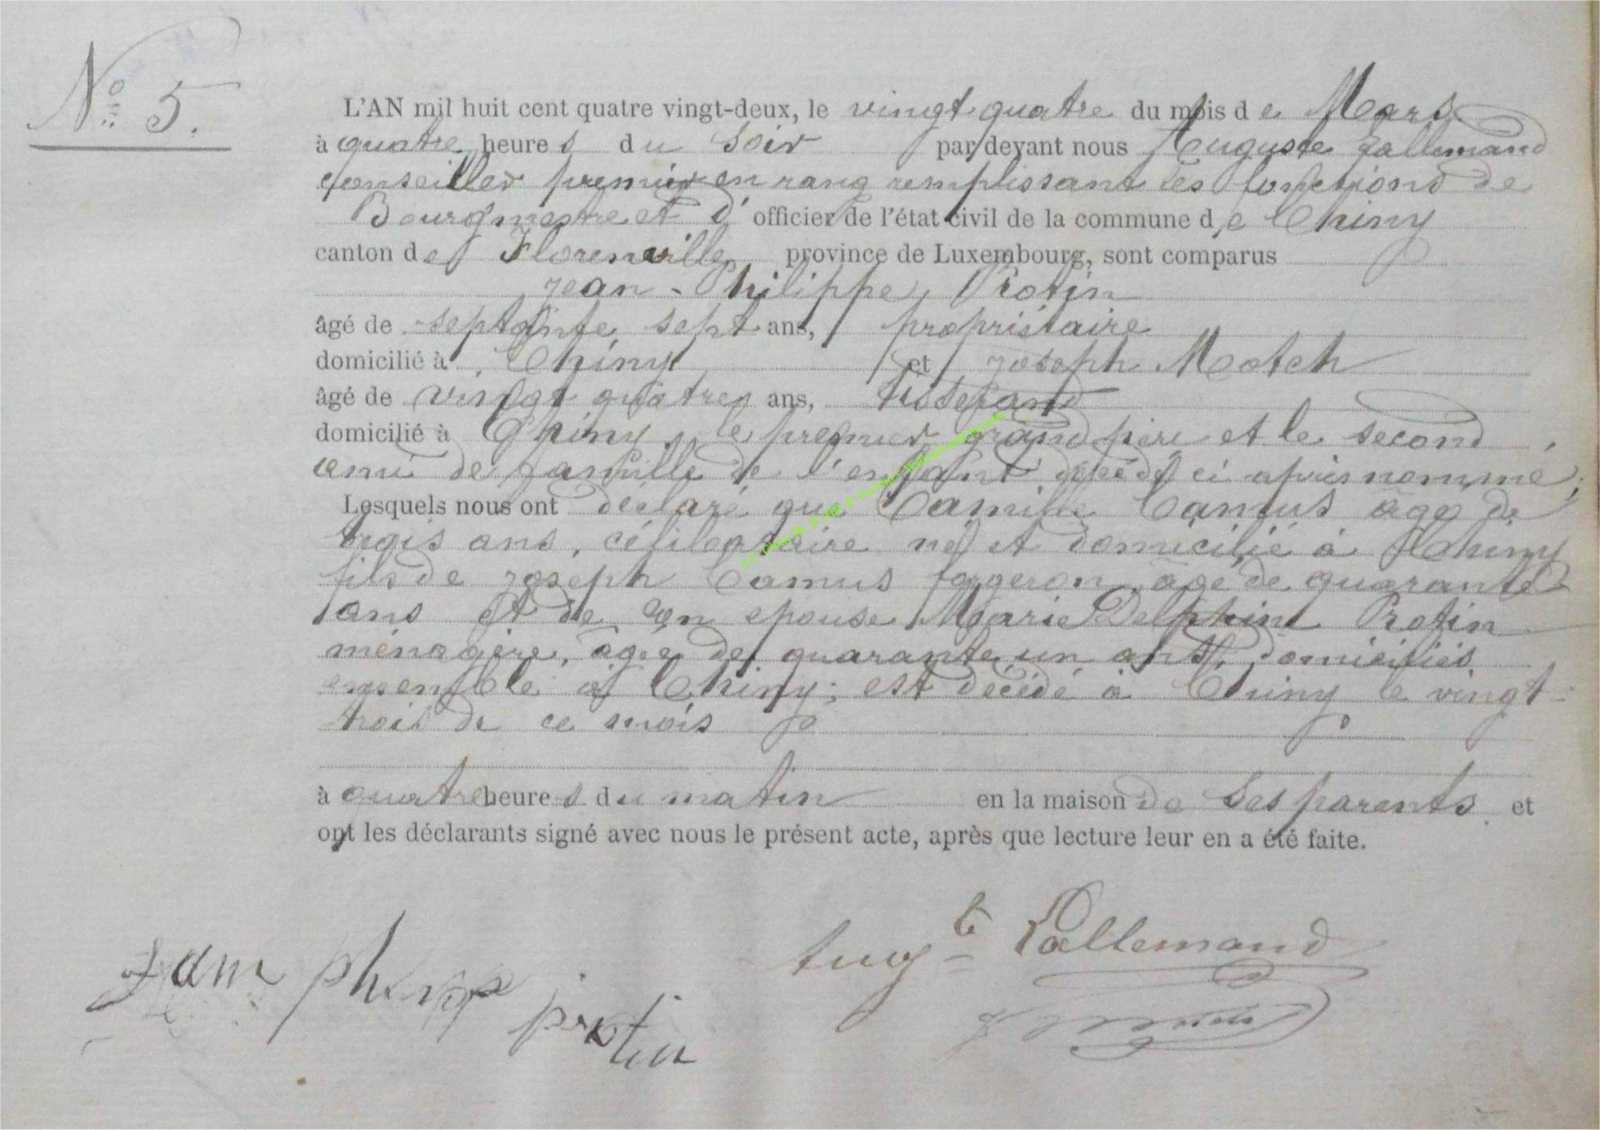 N° 5.
L'AN mil huit cent quatre vingt-deux, le vingt quatre du mois de Mars
à quatre heures du soir par devant nous Auguste Lallemand
conseiller premier en rang remplissant les fonctions de
Bourgmestre et d' officier de l'état civil de la commune de Chiny
canton de Florenville province de Luxembourg, sont comparus
Jean-Philippe Protin
âgé de septante sept ans, propriétaire
domicilié à Chiny et Joseph Motch
âgé de vingt quatre ans, tisserand
domicilié à Chiny, le premier grand père et le second
ami de famille de l'enfant décédé ci après nommé,
Lesquels nous ont déclaré que Camille Camus âgé de
trois ans, célibataire né et domicilié à Chiny
fils de Joseph Camus forgeron, âgé de quarante
ans et de son épouse Marie Delphine Protin
ménagère, âgée de quarante un ans, domiciliés
ensemble à Chiny; est décédé à Chiny le vingt
trois de ce mois
à quatre heures du matin en la maison de ses parents et
ont les déclarants signé avec nous le présent acte, après que lecture leur en a été faite.
Augte Lallemand
Jean protin